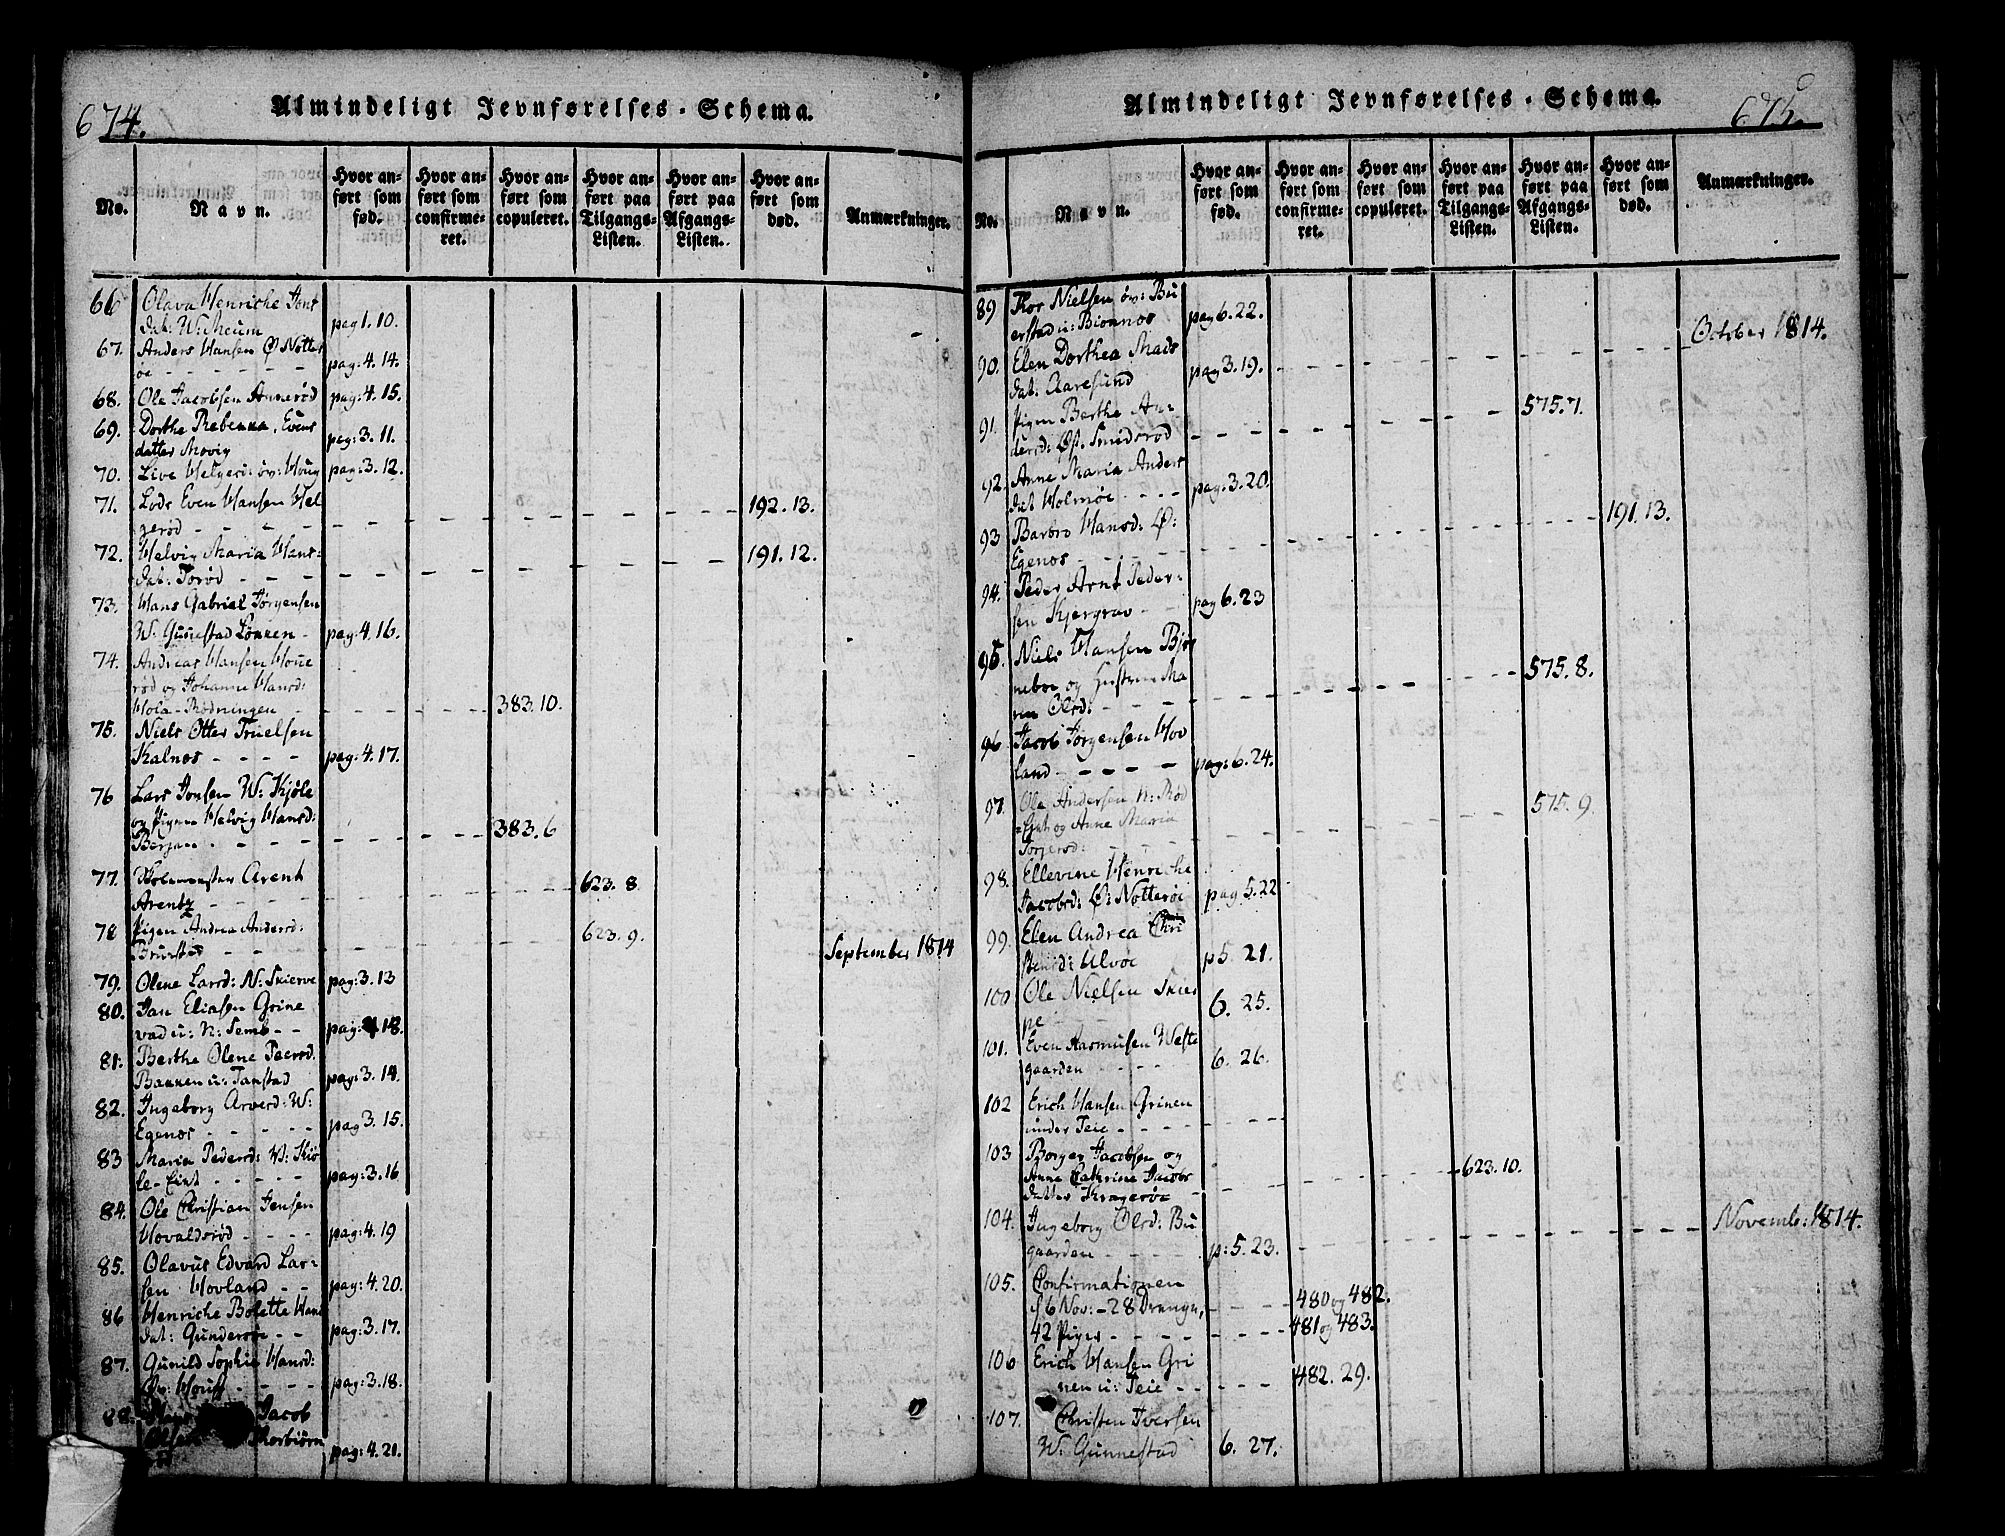 674.
Almindeligt Jevnførelses-Schema.
No.
Navn.
Hvor anført som fød.
Hvor anført som confirmeret.
Hvor anført som copuleret.
Hvor anført paa Tilgangs-Listen.
Hvor anført paa Afgangs-Listen.
Hvor anført som død.
Anmærkninger.
66 Olava Henriche Jons
dat: W: Meum pag 1. 10.
67. Anders Hansen Ø Nøtter
øe - - - - - pag: 4. 14.
68. Ole Jacobsen Annerød pag: 4. 15.
69. Dorthe Rebekka Evens
datter Movig pag: 3. 11.
70. Live Helgers: øv: Houg pag: 3. 12.
71. Lods Even Hansen Hel
gerød - - - - 192. 13.
72. Helvig Maria Hans:
dat: Torød - - - 191. 12.
73. Hans Gabriel Jørgensen
W. Gunestad Løkken - pag: 4. 16.
74. Andreas Hansen Houe
rød og Johanne Hansd:
Hola-Rødningen - - - 383. 10.
75. Niels Otter Truelsen
Kalnes - - - - pag: 4. 17.
76 Lars Jonsen W: Kjøle
og Pigen Helvig Hansd:
Bergan - - - - 383. 6
77. Skolemester Arent
Arentz - - - - 623. 8
78 Pigen Andrea Andersd:
- - - 623. 9. September 1814
79. Olene Larsd: N: Skierve pag: 3. 13
80. Jan Eliasen Grine
vad u: N: Semb - - pag: 4 18.
81. Berthe Olene Peersd.
Bakken u: Tanstad pag: 3. 14.
82. Ingeborg Arversd: W:
Egenes - - - - - pag 3. 15.
83 Maria Pedersd: W: Kiø
le-Eiet - - - - - pag: 3. 16
84. Ole Christian Jensen
Hovaldsrød - - - - pag: 4. 19
85. Olavus Edvard Lar-
sen Hovland - - pag: 4. 20.
86 Henriche Bolette Hans
dat: Gundersøe - - pag: 3. 17.
87. Gunild Sophie Hansd:
Øv: Houg - - - - pag: 3. 18.
88. Hans Jacob
Olsen Thorbiørn
pag: 4. 21.
675.
Almindeligt Jevnførelses-Schema.
No.
Navn.
Hvor anført som fød.
Hvor anført som confirmeret.
Hvor anført som copuleret.
Hvor anført paa Tilgangs-Listen.
Hvor anført paa Afgangs-Listen.
Hvor anført som død.
Anmærkninger.
89 Thor Nielsen øv: Bu
erstad u: Biønnes pag 6. 22.
October 1814.
90. Elen Dorthea Mads
dat: Aaresund pag 3. 19. - - - -
91. Pigen Berthe An-
dersd: Øst. Smidsrød - - - 575. 7.
92. Anne Maria Anders
dat Holmøe - - - - pag: 3. 20.
93 Barbro Hansd: Ø:
Egenes - - - - - 191. 13.
94. Peder Arnt Peder-
sen Kjærgrav - - pag 6. 23
95. Niels Hansen Bjør
neboe og Hustrue Ma
ren Olsd: - - - - 575. 8.
96 Jacob Jørgensen Hov
land - - - - - pag: 6. 24.
97. Ole Andersen N: Rød
=Eiet og Anne Maria
Torgersd: - - - 575. 9.
98. Ellevine Henriche
Jacobsd: Ø: Nøtterøe pag 5. 22
99. Elen Andrea Chri
stensd: Ulvøe p 5. 21.
100. Ole Nielsen Skier
pe - - - 6. 25.
101. Even Rasmusen Weste
gaarden - - - - 6. 26.
102 Erich Hansen Grinen
under Teie - - - -
103 Borger Jacobsen og
Anne Cathrine Jacobs
datter Kragerøe - - - 623. 10.
104. Ingeborg Olsd: Bu
gaarden - - - - p: 5. 23. - - - - Novemb: 1814.
105. Confirmationen
d 6 Nov: - 28 Drenge, - - - - 480 og 482.
42 Piger - - - - - 481 og 483.
106 Erich Hansen Gri
nen u: Teie - - - - - 482. 29.
107. Christen Iversen
W. Gunnestad 6. 27.